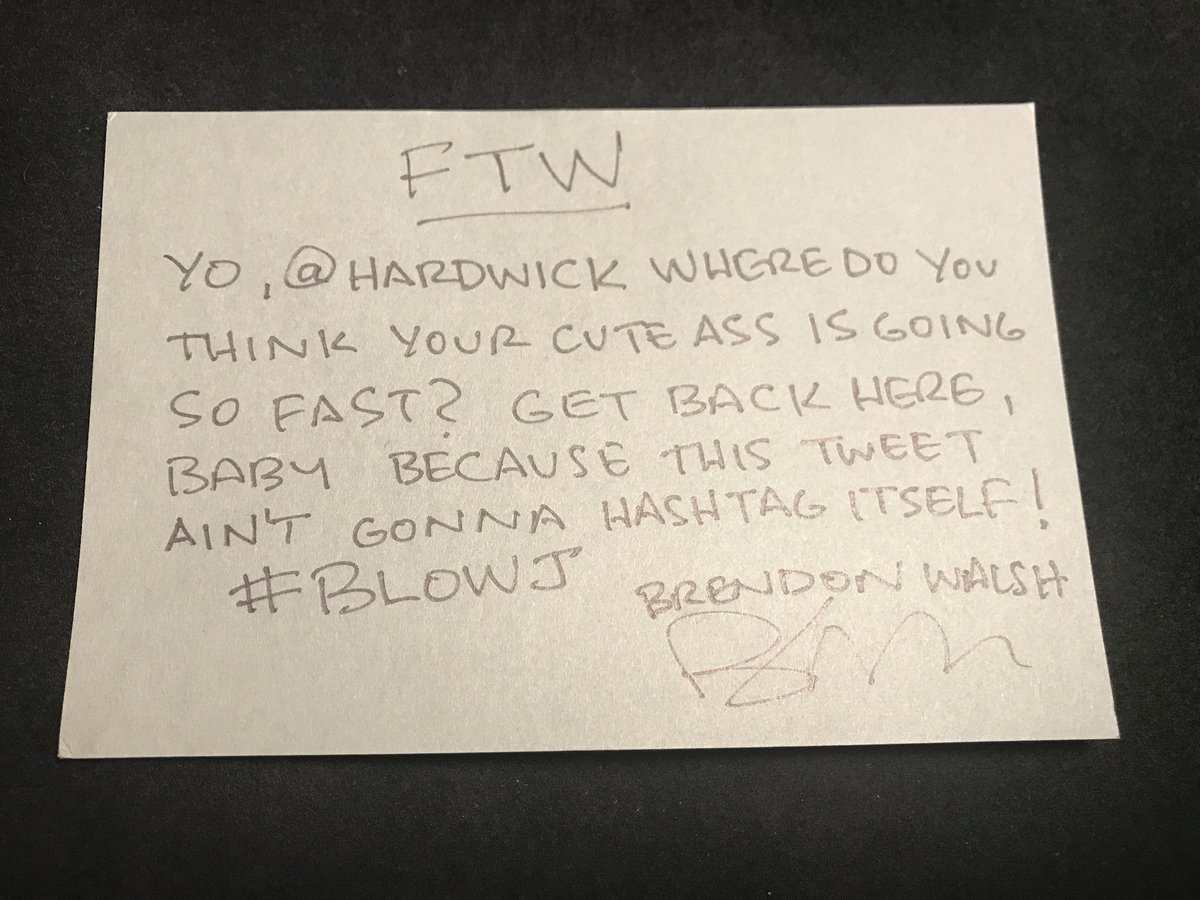 FTW
YO, @HARDWICK WHERE DO YOU
THINK YOUR CUTE ASS IS GOING
SO FAST? GET BACK HERE,
BABY BECAUSE THIS TWEET
AIN'T GONNA HASHTAG ITSELF!
#BLOWJ
BRENDON WALSH